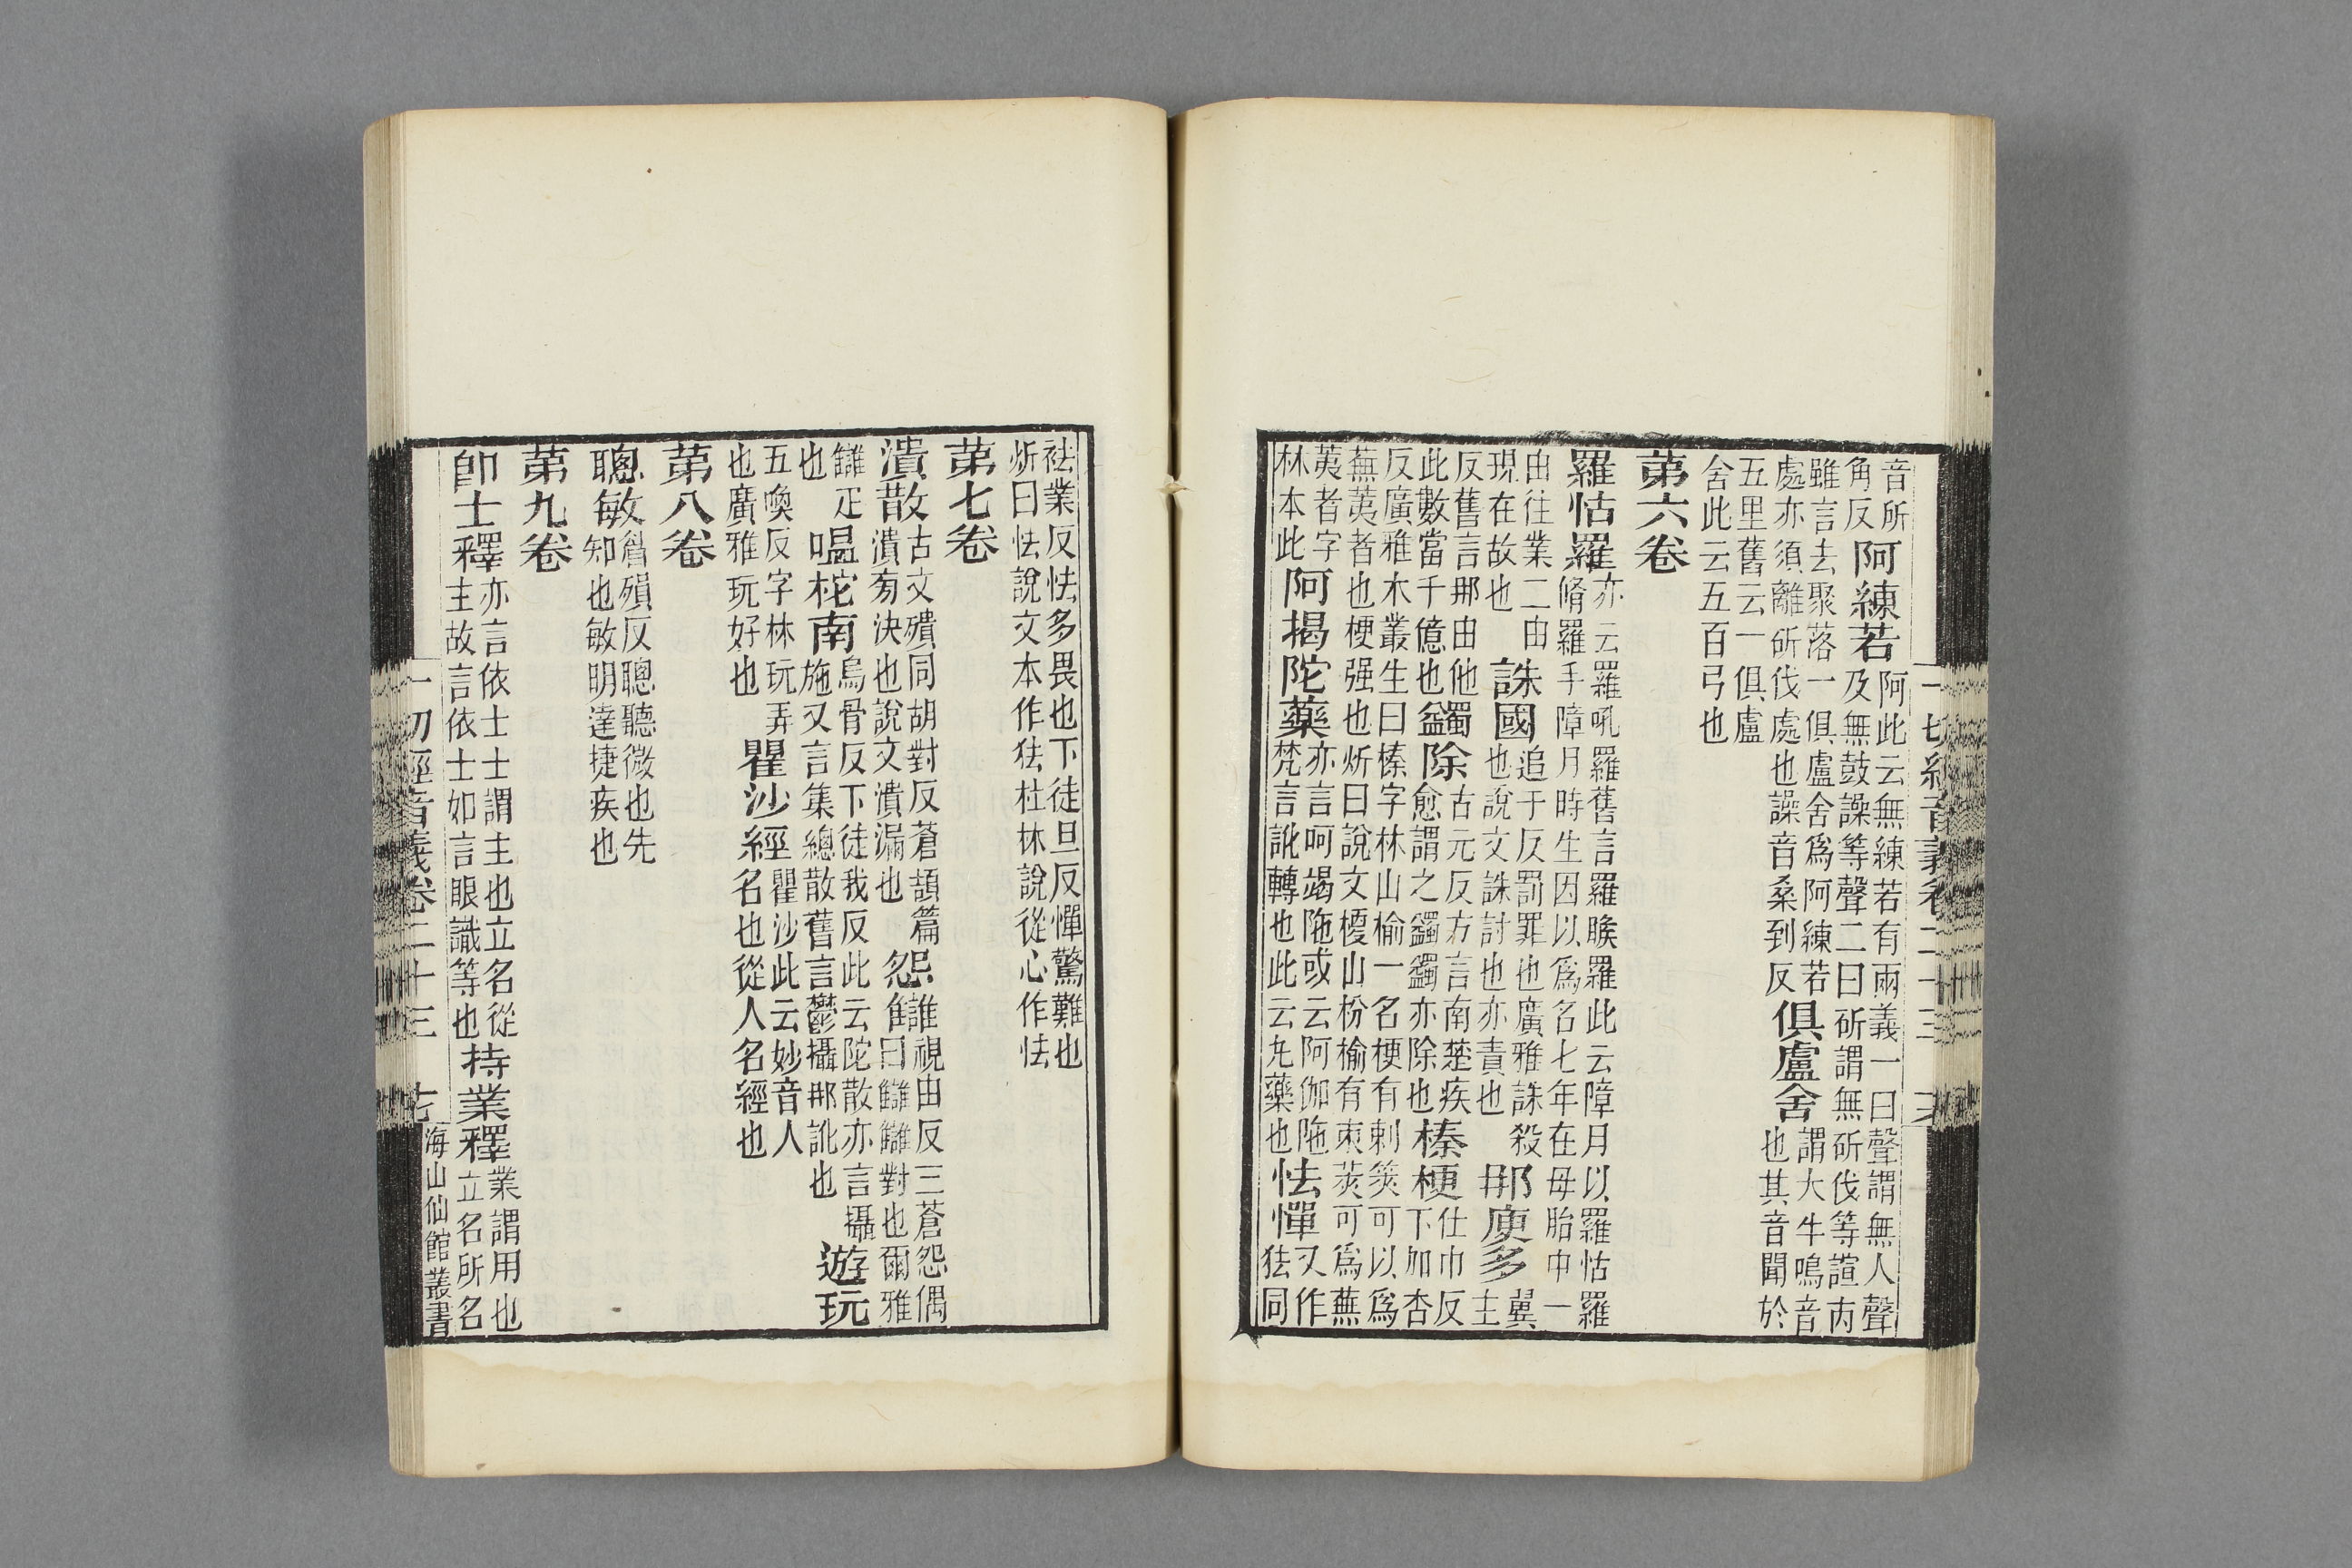 一切經音義卷二十三
音所
角反
阿練若
阿此云無練若有兩義一曰聲謂無人聲
及無鼓譟等聲二曰斫謂無斫伐等諠丙
雖言去聚落一俱盧舍爲阿練若謂大牛鳴音
處亦須離斫伐處也譟音桑到反
俱盧舍
也其音聞於
五里舊云一俱盧
舍此云五百弓也
苐六卷
羅怙羅
亦云羅吼羅舊言羅睺羅此云障月以羅怙羅
脩羅手障月時生因以爲名七年在母胎中一
由往業二由
現在故也
誅國
追于反罰罪也廣雅誅殺
也說文誅討也亦責也
那庾多
冀
主
反舊言那由他
此數當千億也
蠲除
古元反方言南楚疾
愈謂之蠲蠲亦除也
榛梗
仕巾反
下加杏
反廣雅木叢生曰榛字林山榆一名梗有刺筴可以爲
蕪荑者也梗强也斫曰說文榎山枌榆有朿莢可爲蕪
荑者字
林本此
阿揭陀藥
亦言呵竭陁或云阿伽陁
梵言訛轉也此云九藥也
怯憚
又作
㹤同
袪業反怯多畏也下徒旦反憚驚難也
斫曰怯說文本作㹤杜林說從心作怯
苐七卷
潰散
古文殨同胡對反蒼頡篇
潰㫄決也說文潰漏也
怨隹
誰視由反三蒼怨偶
曰讎讎對也爾雅
讎疋
也
嗢柁南
烏骨反下徒我反此云陀散亦言攝
施又言集總散舊言鬱攝那訛也
遊玩
五喚反字林玩弄
也廣雅玩好也
瞿沙經
瞿沙此云妙音人
名也從人名經也
苐八卷
聰敏
㗭殞反聰聽微也先
知也敏明達捷疾也
苐九卷
卽士釋
亦言依士士謂主也立名從
主故言依士如言眼識等也
持業釋
業謂用也
立名所名
一切經音義卷二十三
海山仙館叢書